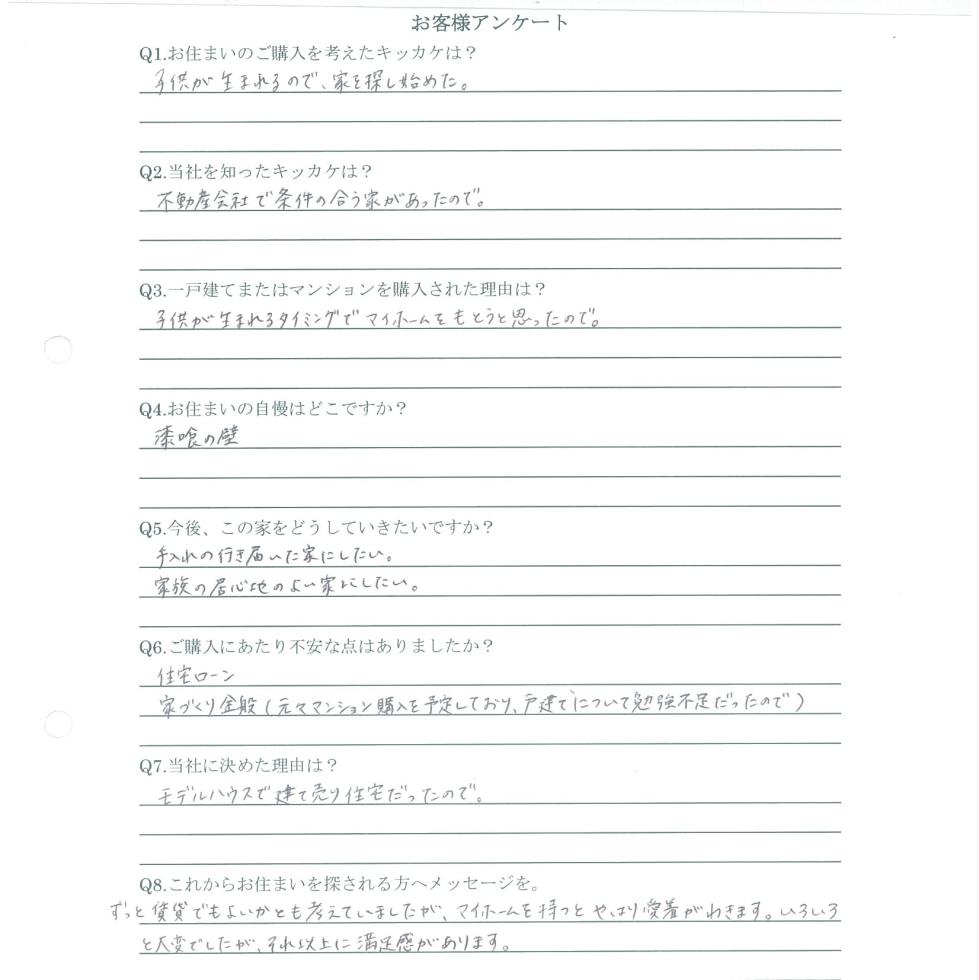 お客様アンケート
Q1.お住まいのご購入を考えたキッカケは？
子供が生まれるので、家を探し始めた。
Q2.当社を知ったキッカケは？
不動産会社で条件の合う家があったので。
Q3.一戸建てまたはマンションを購入された理由は？
子供が生まれるタイミングでマイホームをもとうと思ったので。
Q4.お住まいの自慢はどこですか？
漆喰の壁
Q5.今後、この家をどうしていきたいですか？
手入れの行き届いた家にしたい。
家族の居心地のよい家にしたい。
Q6.ご購入にあたり不安な点はありましたか？
住宅ローン
家づくり全般(元々マンション購入を予定しており、戸建てについて勉強不足だったので)
Q7.当社に決めた理由は？
モデルハウスで建て売り住宅だったので。
Q8.これからお住まいを探される方へメッセージを。
ずっと賃貸でもよいかとも考えていましたが、マイホームを持つとやはり愛着がわきます。いろいろ
と大変でしたが、それ以上に満足感があります。